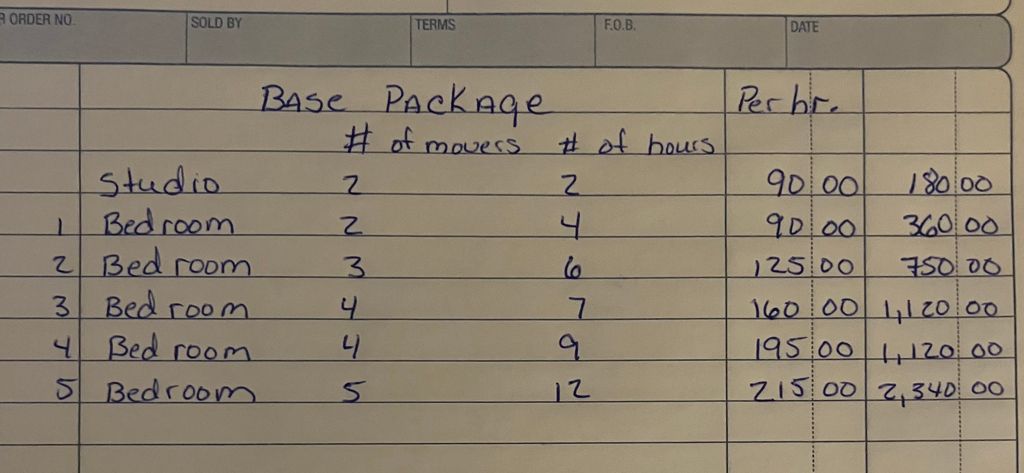 R ORDER NO. SOLD BY TERMS F.O.B. DATE
Base Package Per hr.
# of movers # of hours
Studio 2 2 90 00 180 00
1 Bedroom 2 4 90 00 360 00
2 Bed room 3 6 125 00 750 00
3 Bed room 4 7 160 00 1,120 00
4 Bed room 4 9 195 00 1,120 00
5 Bedroom 5 12 215 00 2,340 00